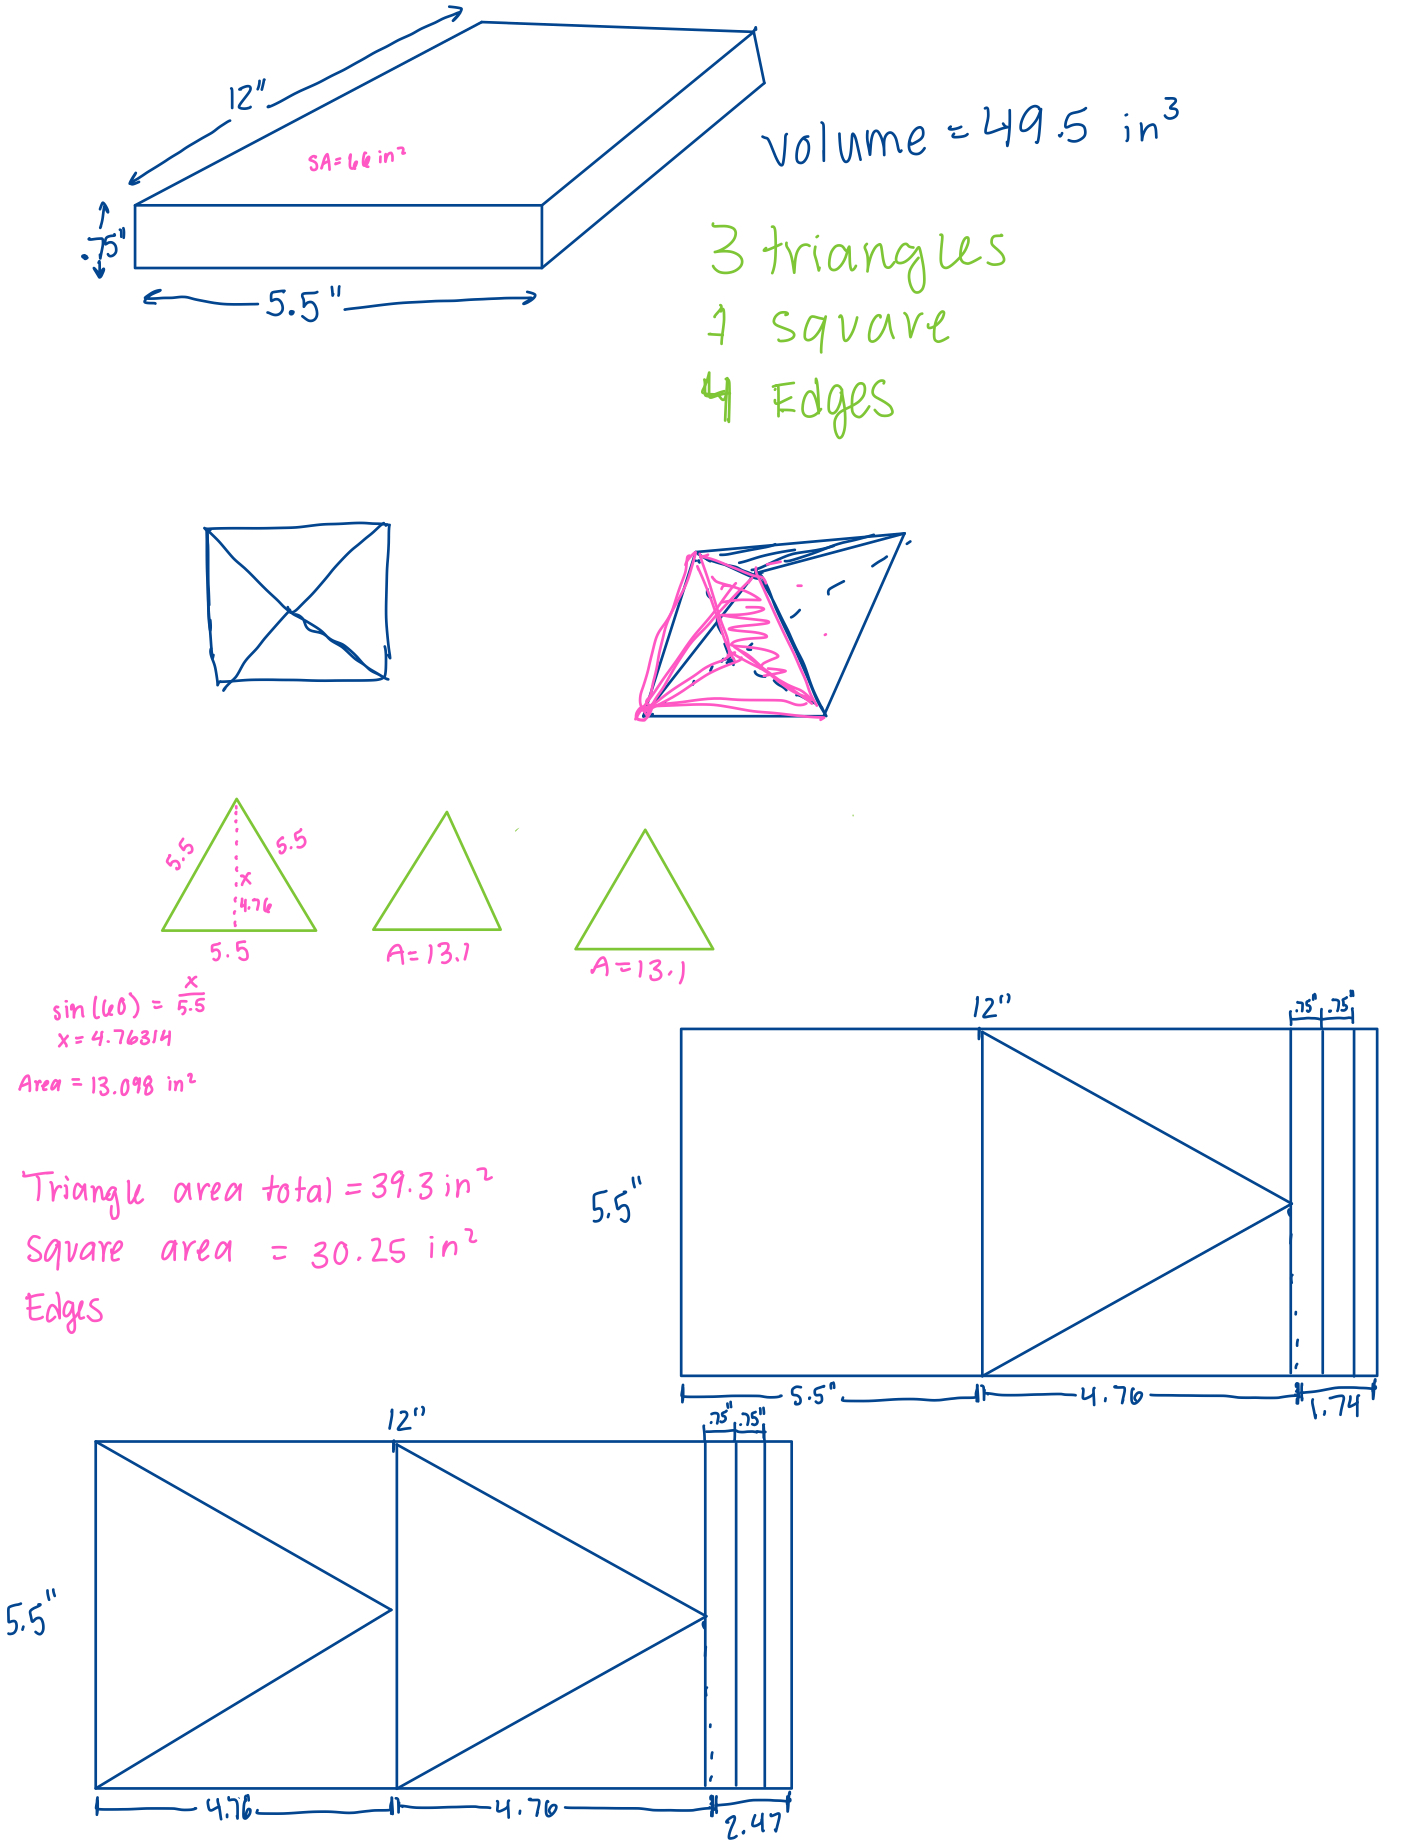 12"
SA=66 in²
.75"
5.5"
volume = 49.5 in³
3 triangles
1 square
4 Edges
5.5
5.5
x
4.76
5.5
A=13.1
A=13.1
sin(60) = x/5.5
x = 4.76314
Area = 13.098 in²
Triangle area total = 39.3 in²
Square area = 30.25 in²
Edges
12"
.75" .75"
5.5"
5.5" 4.76 1.74
12"
.75" .75"
5.5"
4.76 4.76 2.47